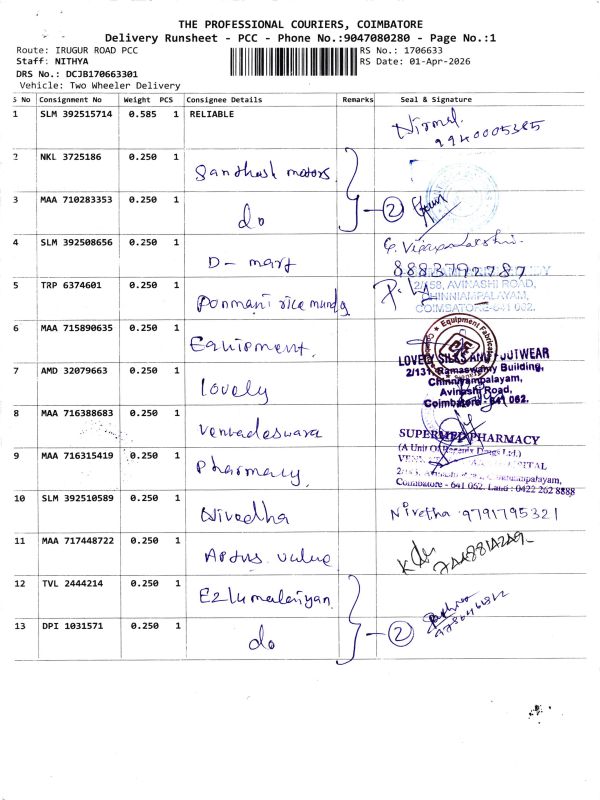 THE PROFESSIONAL COURIERS, COIMBATORE
Delivery Runsheet - PCC - Phone No.:9047080280 - Page No.:1
Route: IRUGUR ROAD PCC
Staff: NITHYA
DRS No.: DCJB170663301
Vehicle: Two Wheeler Delivery
RS No.: 1706633
RS Date: 01-Apr-2026
S No Consignment No Weight PCS Consignee Details Remarks Seal & Signature
1 SLM 392515714 0.585 1 RELIABLE Nirmal.
9940005385
2 NKL 3725186 0.250 1 Santhosh motors
3 MAA 710283353 0.250 1 do 2
4 SLM 392508656 0.250 1 D-mart
8883792787
5 TRP 6374601 0.250 1 Ponmani rice mundy
2/158, AVINASHI ROAD,
CHINNIAMPALAYAM,
COIMBATORE-641 062.
6 MAA 715890635 0.250 1 Equipment.
Equipment Fabricators
7 AMD 32079663 0.250 1 Lovely
LOVELY SILKS AND FOOTWEAR
2/131, Ramaswamy Building,
Chinniyampalayam,
Avinashi Road,
Coimbatore - 641 062.
8 MAA 716388683 0.250 1 Venkadeswara
9 MAA 716315419 0.250 1 Pharmacy,
SUPERMED PHARMACY
(A Unit Of Drugs Ltd.)
HOSPITAL
Coimbatore - 641 062. Land : 0422 262 8888
10 SLM 392510589 0.250 1 Nivedha Nivetha 9791795321
11 MAA 717448722 0.250 1 value
12 TVL 2444214 0.250 1 Ezhumalaiyan
13 DPI 1031571 0.250 1 do 2